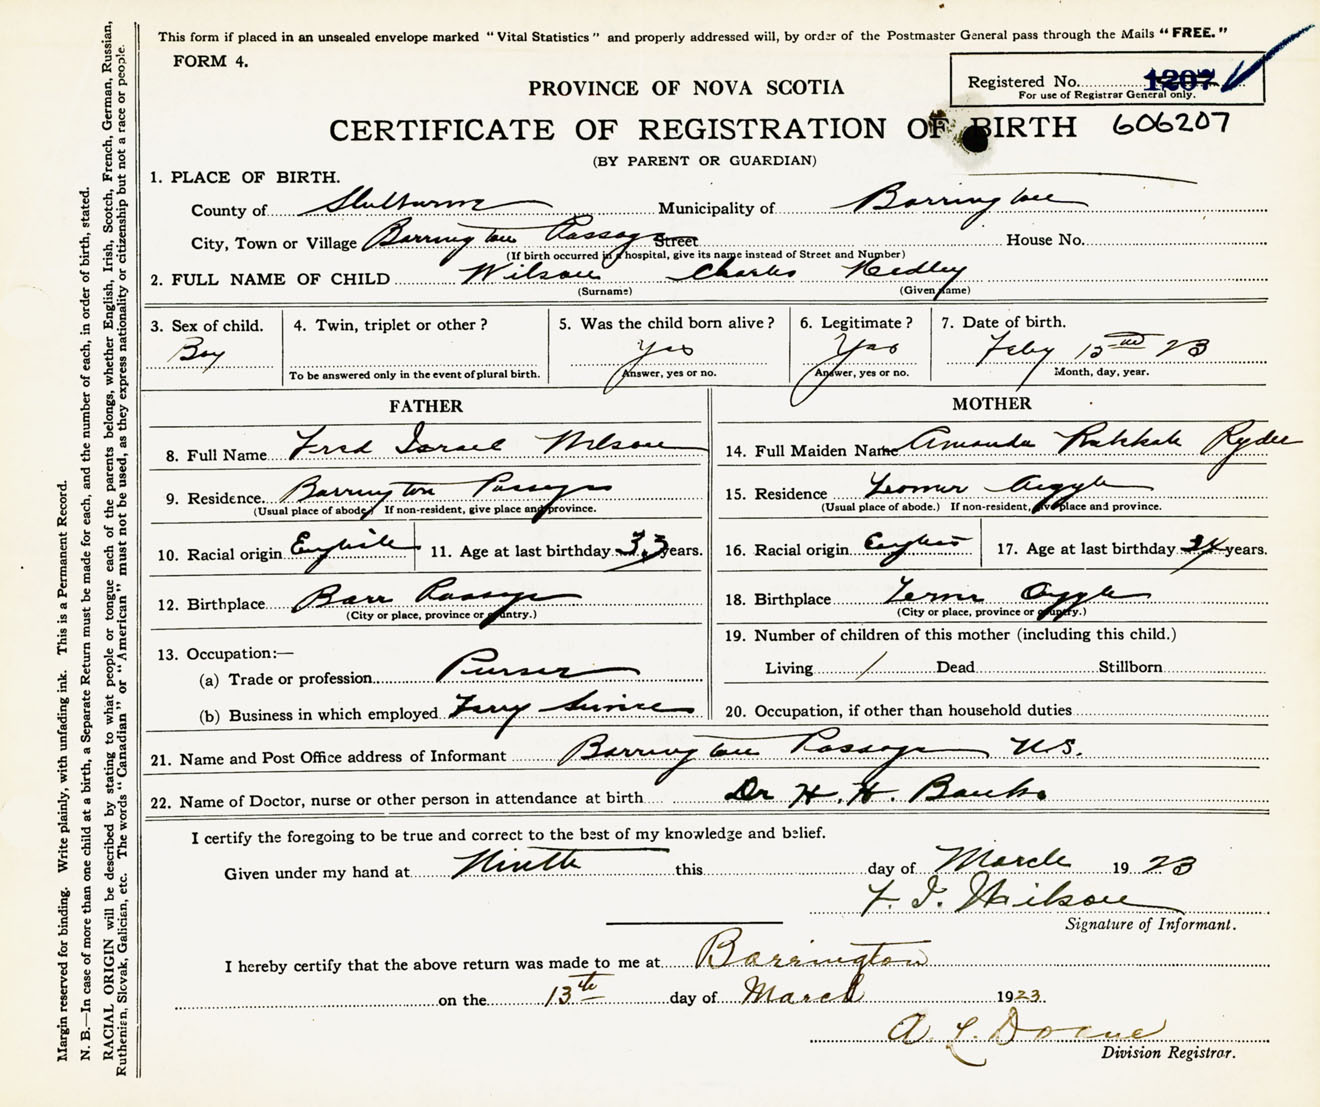 This form if placed in an unsealed envelope marked "Vital Statistics" and properly addressed will, by order of the Postmaster General pass through the Mails "FREE."
FORM 4.
Registered No. 1207
For use of Registrar General only.
PROVINCE OF NOVA SCOTIA
CERTIFICATE OF REGISTRATION OF BIRTH 606207
(BY PARENT OR GUARDIAN)
1. PLACE OF BIRTH.
County of Shelburne Municipality of Barrington
City, Town or Village Barrington Passage Street House No.
(If birth occurred in a hospital, give its name instead of Street and Number)
2. FULL NAME OF CHILD Wilson Charles Hedley
(Surname) (Given name)
3. Sex of child. 4. Twin, triplet or other? 5. Was the child born alive? 6. Legitimate? 7. Date of birth.
Boy Yes Yes Feby 23
To be answered only in the event of plural birth. Answer, yes or no. Answer, yes or no. Month, day, year.
FATHER
8. Full Name Fred Israel Wilson
9. Residence. Barrington Passage
(Usual place of abode) If non-resident, give place and province.
10. Racial origin English 11. Age at last birthday 33 years.
12. Birthplace Barr Passage
(City or place, province or country.)
13. Occupation:—
(a) Trade or profession Purser
(b) Business in which employed Ferry Service
MOTHER
14. Full Maiden Name Amanda Ryder
15. Residence Argyle
(Usual place of abode.) If non-resident, give place and province.
16. Racial origin English 17. Age at last birthday years.
18. Birthplace Argyle
(City or place, province or country.)
19. Number of children of this mother (including this child.)
Living / Dead Stillborn
20. Occupation, if other than household duties
21. Name and Post Office address of Informant Barrington Passage N.S.
22. Name of Doctor, nurse or other person in attendance at birth Dr H. H. Banks
I certify the foregoing to be true and correct to the best of my knowledge and belief.
Given under my hand at Ninth this day of March 1923
F. I. Wilson
Signature of Informant.
I hereby certify that the above return was made to me at Barrington
on the 13th day of March 1923
A L Doane
Division Registrar.
Margin reserved for binding. Write plainly, with unfading ink. This is a Permanent Record.
N. B.—In case of more than one child at a birth, a Separate Return must be made for each, and the number of each, in order of birth, stated.
RACIAL ORIGIN will be described by stating to what people or tongue each of the parents belongs, whether English, Irish, Scotch, French, German, Russian,
Ruthenian, Slovak, Galician, etc. The words "Canadian" or "American" must not be used, as they express nationality or citizenship but not a race or people.